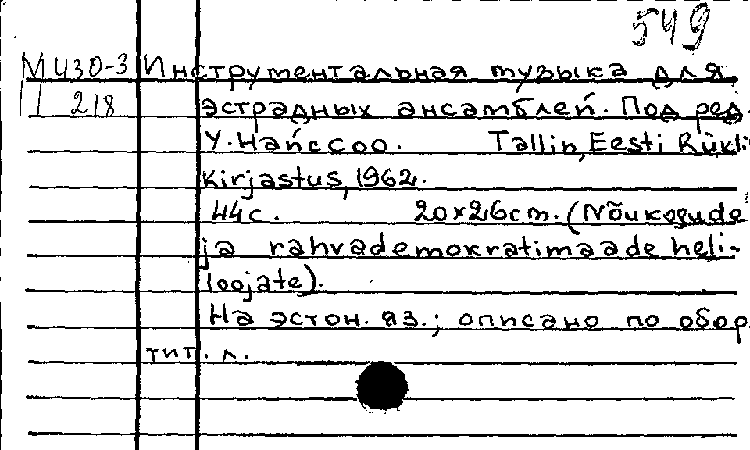 549
М ИЗО-3 Инструментальная музыка для
II 218 эстрадных ансамблей. Под ред.
У. Найссоо. Tallin, Eesti Rükli
Kirjastus, 1962.
44с. 20x26cm. (Nõukogude
ja rahvademokratimaade heli-
loojate).
На эстон. яз.; описано по обор
тит. л.